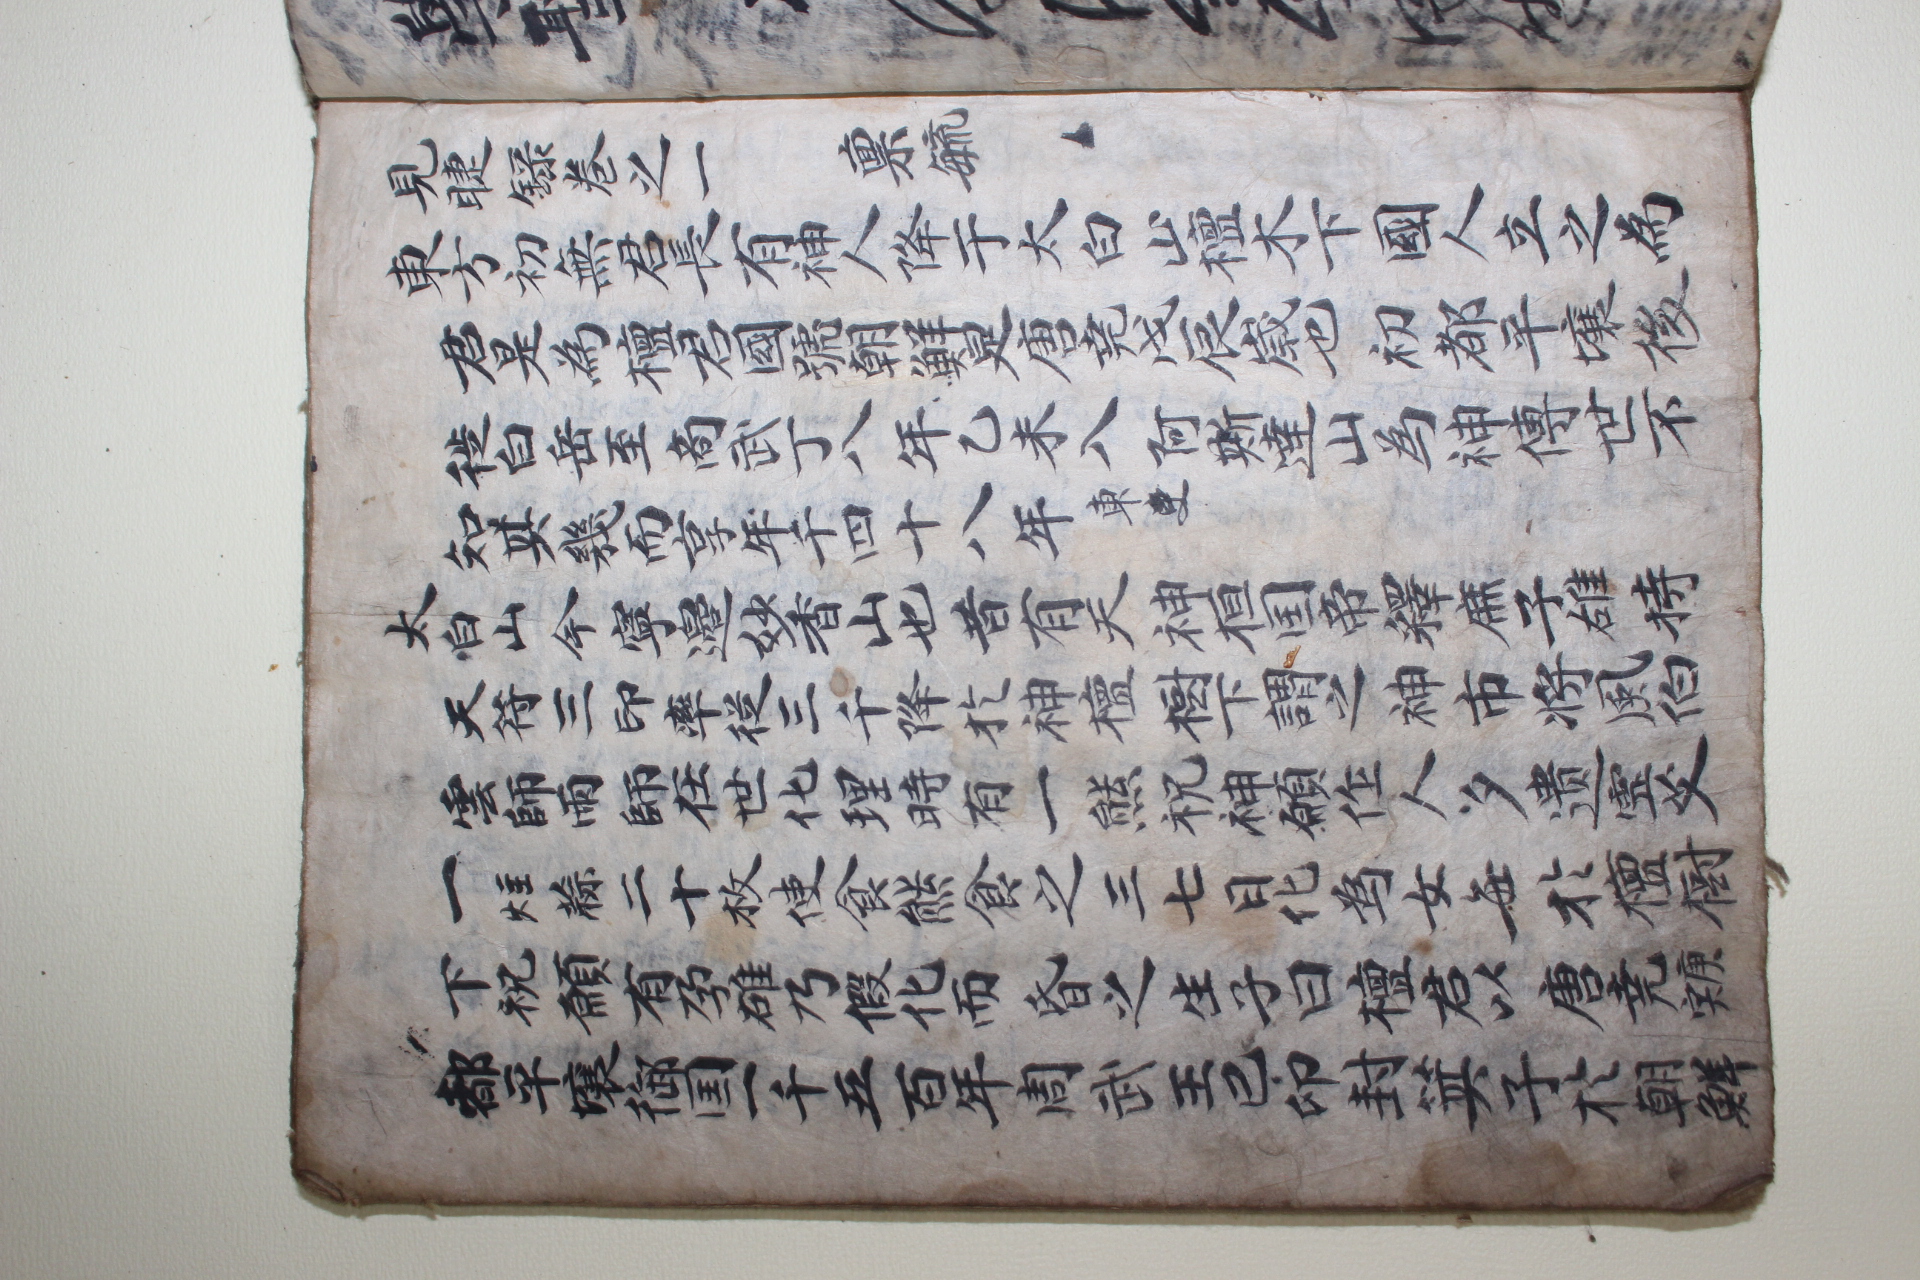 見睫錄卷之一 稟毓
東方初無君長有神人降于太白山檀木下國人立之為
君是為檀君國號朝鮮是唐堯戊辰歲也初都平壤後
徙白岳至商武丁八年乙未入阿斯達山為神傳世不
知其幾而享年千四十八年
太白山今寧邊妙香山也昔有天神桓因帝釋庶子雄持
天符三印率徒三千降於神檀樹下謂之神市將風伯
雲師雨師在世化理時有一熊祝神願化人身遺靈艾
一炷蒜二十枚使食熊食之三七日化為女每於檀樹
下祝願有孕雄乃假化而婚之生子曰檀君以唐堯庚寅
都平壤御國一千五百年周武王己卯封箕子於朝鮮